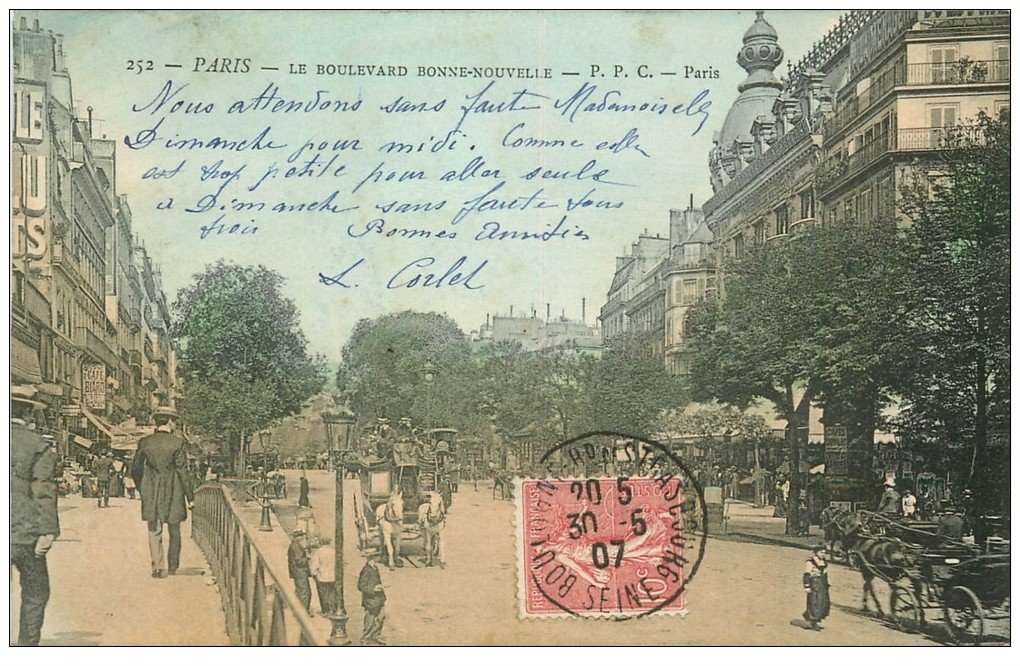 252 — PARIS — LE BOULEVARD BONNE-NOUVELLE — P. P. C. — Paris
Nous attendons sans faute Mademoiselle
Dimanche pour midi. Comme elle
est trop petite pour aller seule
a Dimanche sans faute tous
trois Bonnes Amities
L. Corlet
CAFÉ
20 5
30 -5
07
SEINE
10c